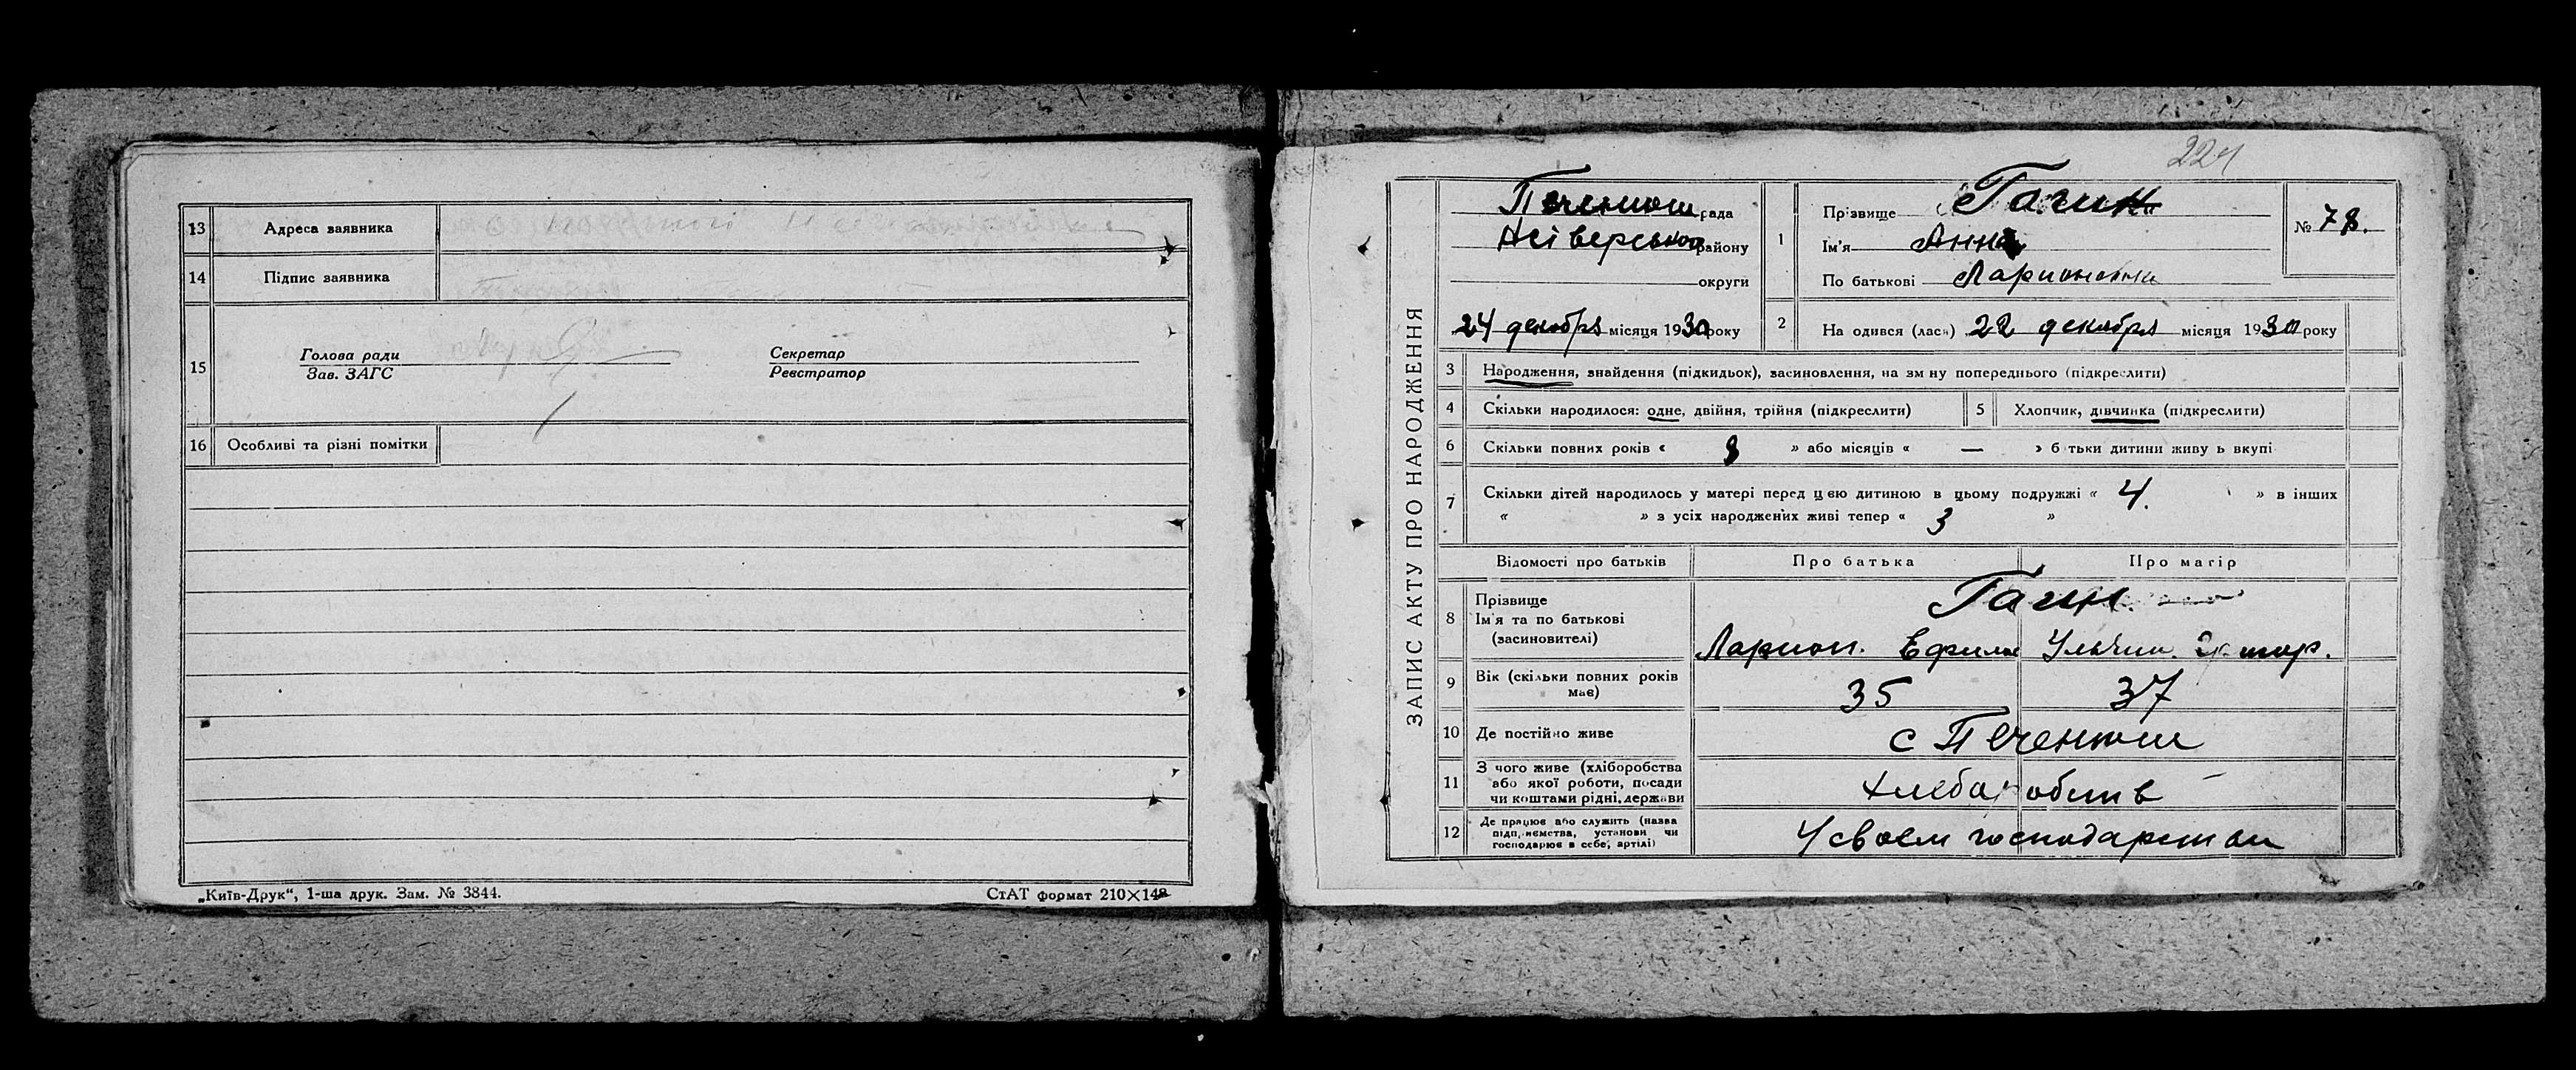 13 Адреса заявника
14 Підпис заявника
15 Голова ради
Зав. ЗАГС
Секретар
Реєстратор
16 Особливі та різні помітки
„Київ-Друк“, 1-ша друк. Зам. № 3844.
СтАТ формат 210×148
ЗАПИС АКТУ ПРО НАРОДЖЕННЯ
Печенюги рада
району
округи
24 декабря місяця 1930 року
1 Прізвище Гагин
Ім'я Анна
По батькові Ларионовна
№ 78.
2 На одився (лась) 22 декабря місяця 1930 року
3 Народження, знайдення (підкидьок), засиновлення, на зм ну попереднього (підкреслити)
4 Скільки народилося: одне, двійня, трійня (підкреслити)
5 Хлопчик, дівчинка (підкреслити)
6 Скільки повних років « 8 » або місяців « — » б тьки дитини живу ь вкупі
7 Скільки дітей народилось у матері перед цією дитиною в цьому подружжі « 4. » в інших
« » з усіх народжених живі тепер « 3 »
Відомості про батьків
Про батька
Про матір
8 Прізвище
Ім'я та по батькові
(засиновителі)
Гагин
Ларион. Ефим
9 Вік (скільки повних років має)
35
37
10 Де постійно живе
с Печенюги
11 З чого живе (хліборобства
або якої роботи, посади
чи коштами рідні, держави
хлебаробств
12 Де працює або служить (назва
підприємства, установи чи
господарює в себе, артілі)
У своем господарстви